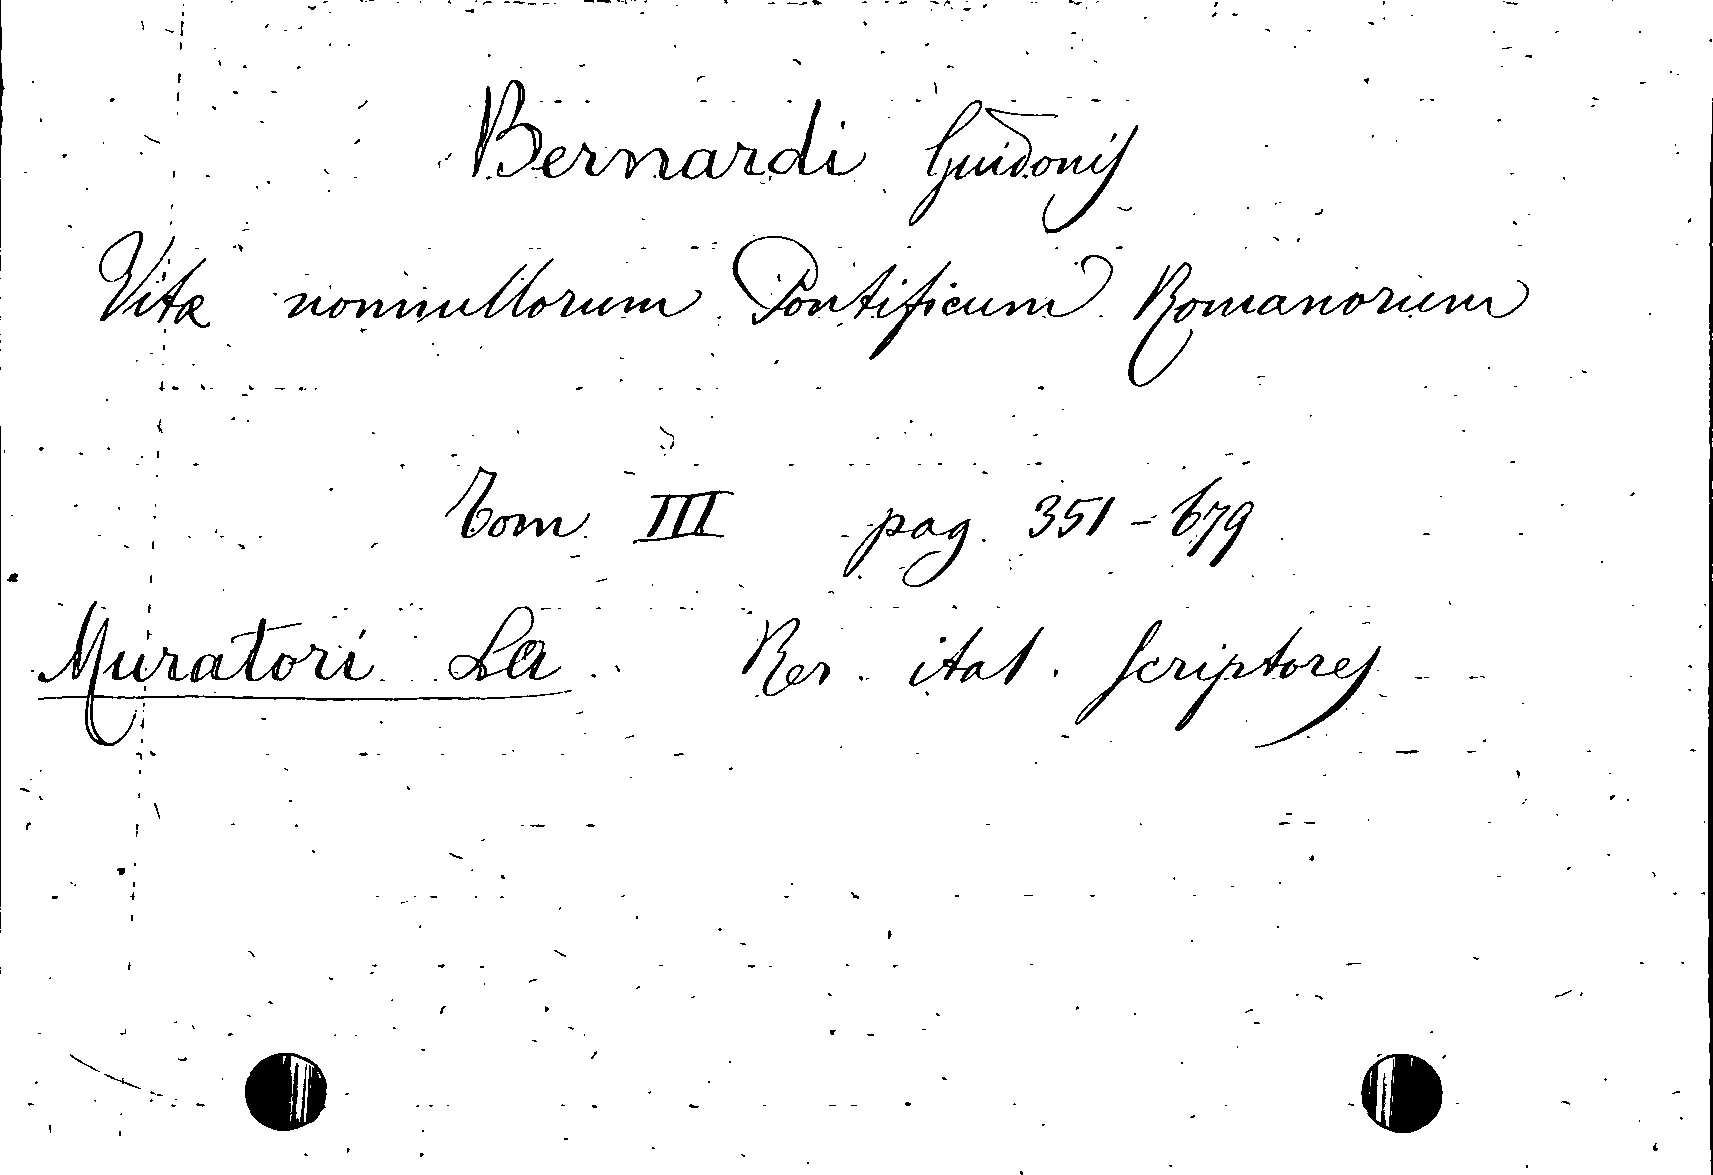 Bernardi Guidonis
Vitæ nonnullorum Pontificum Romanorum
Tom III pag. 351 - 679
Muratori La. Rer. ital. Scriptores